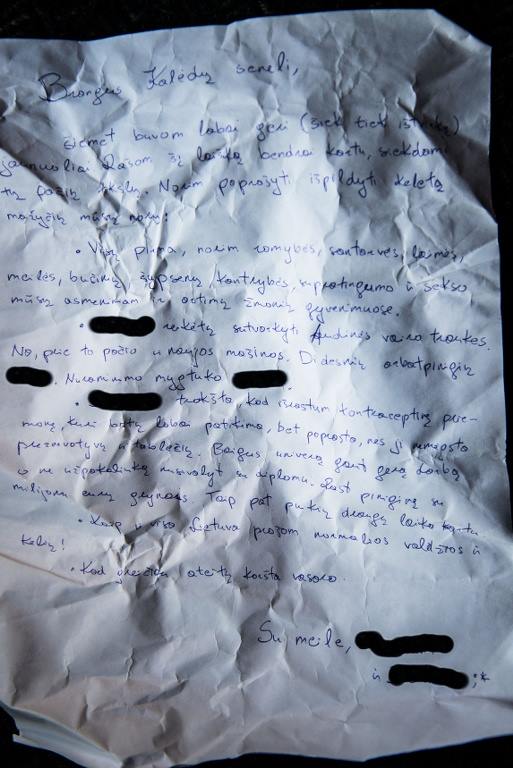 Brangus Kalėdų seneli,
šiemet buvom labai geri (šiek tiek ištvirkę)
jaunuoliai. Rašom šį laišką bendrai kartu, siekdami
tų pačių tikslų. Norim poprašyti išpildyti keletą
mažyčių mūsų norų:
• Visų pirma, norim ramybės, santarvės, laimės,
meilės, bučinių, šypsenų, kantrybės, supratingumo ir sekso
mūsų asmeniniam ir artimų žmonių gyvenimuose.
• reikėtų sutvarkyti Audinės vairo traukes.
Na, prie to pačio ir naujos mašinos. Didesnių arbatpinigių
. Nuraminimo mygtuko .
• trokšta, kad išrastum kontraceptinę prie-
monę, kuri būtų labai patikima, bet paprasta, nes ji nemėgsta
prezervatyvų ir tablečių. Baigus universą gaut gerą darbą
o ne užpakalinką nusivalyt su diplomu. Rast piniginę su
milijonu eurų grynais. Taip pat puikių draugų laiko kartu.
• Kaip ir visa Lietuva prašom normalios valdžios ir
kelių!
• Kad greičiau ateitų karšta vasara.
Su meile,
ir ;*